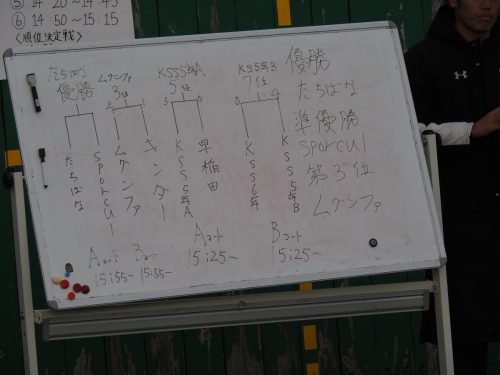 ⑤ 14:20～14:45
⑥ 14:50～15:15
〈順位決定戦〉
たちばな
優勝
ムグンファ
3位
KSS5年A
5位
KSS5年B
7位
2 1
3 0
0 4
たちばな
sporcul
ムグンファ
キンダー
KSS5年A
早稲田
KSS6年
KSS5年B
Aコート
15:55～
Bコート
15:55～
Aコート
15:25～
Bコート
15:25～
優勝
たちばな
準優勝
sporcul
第3位
ムグンファ